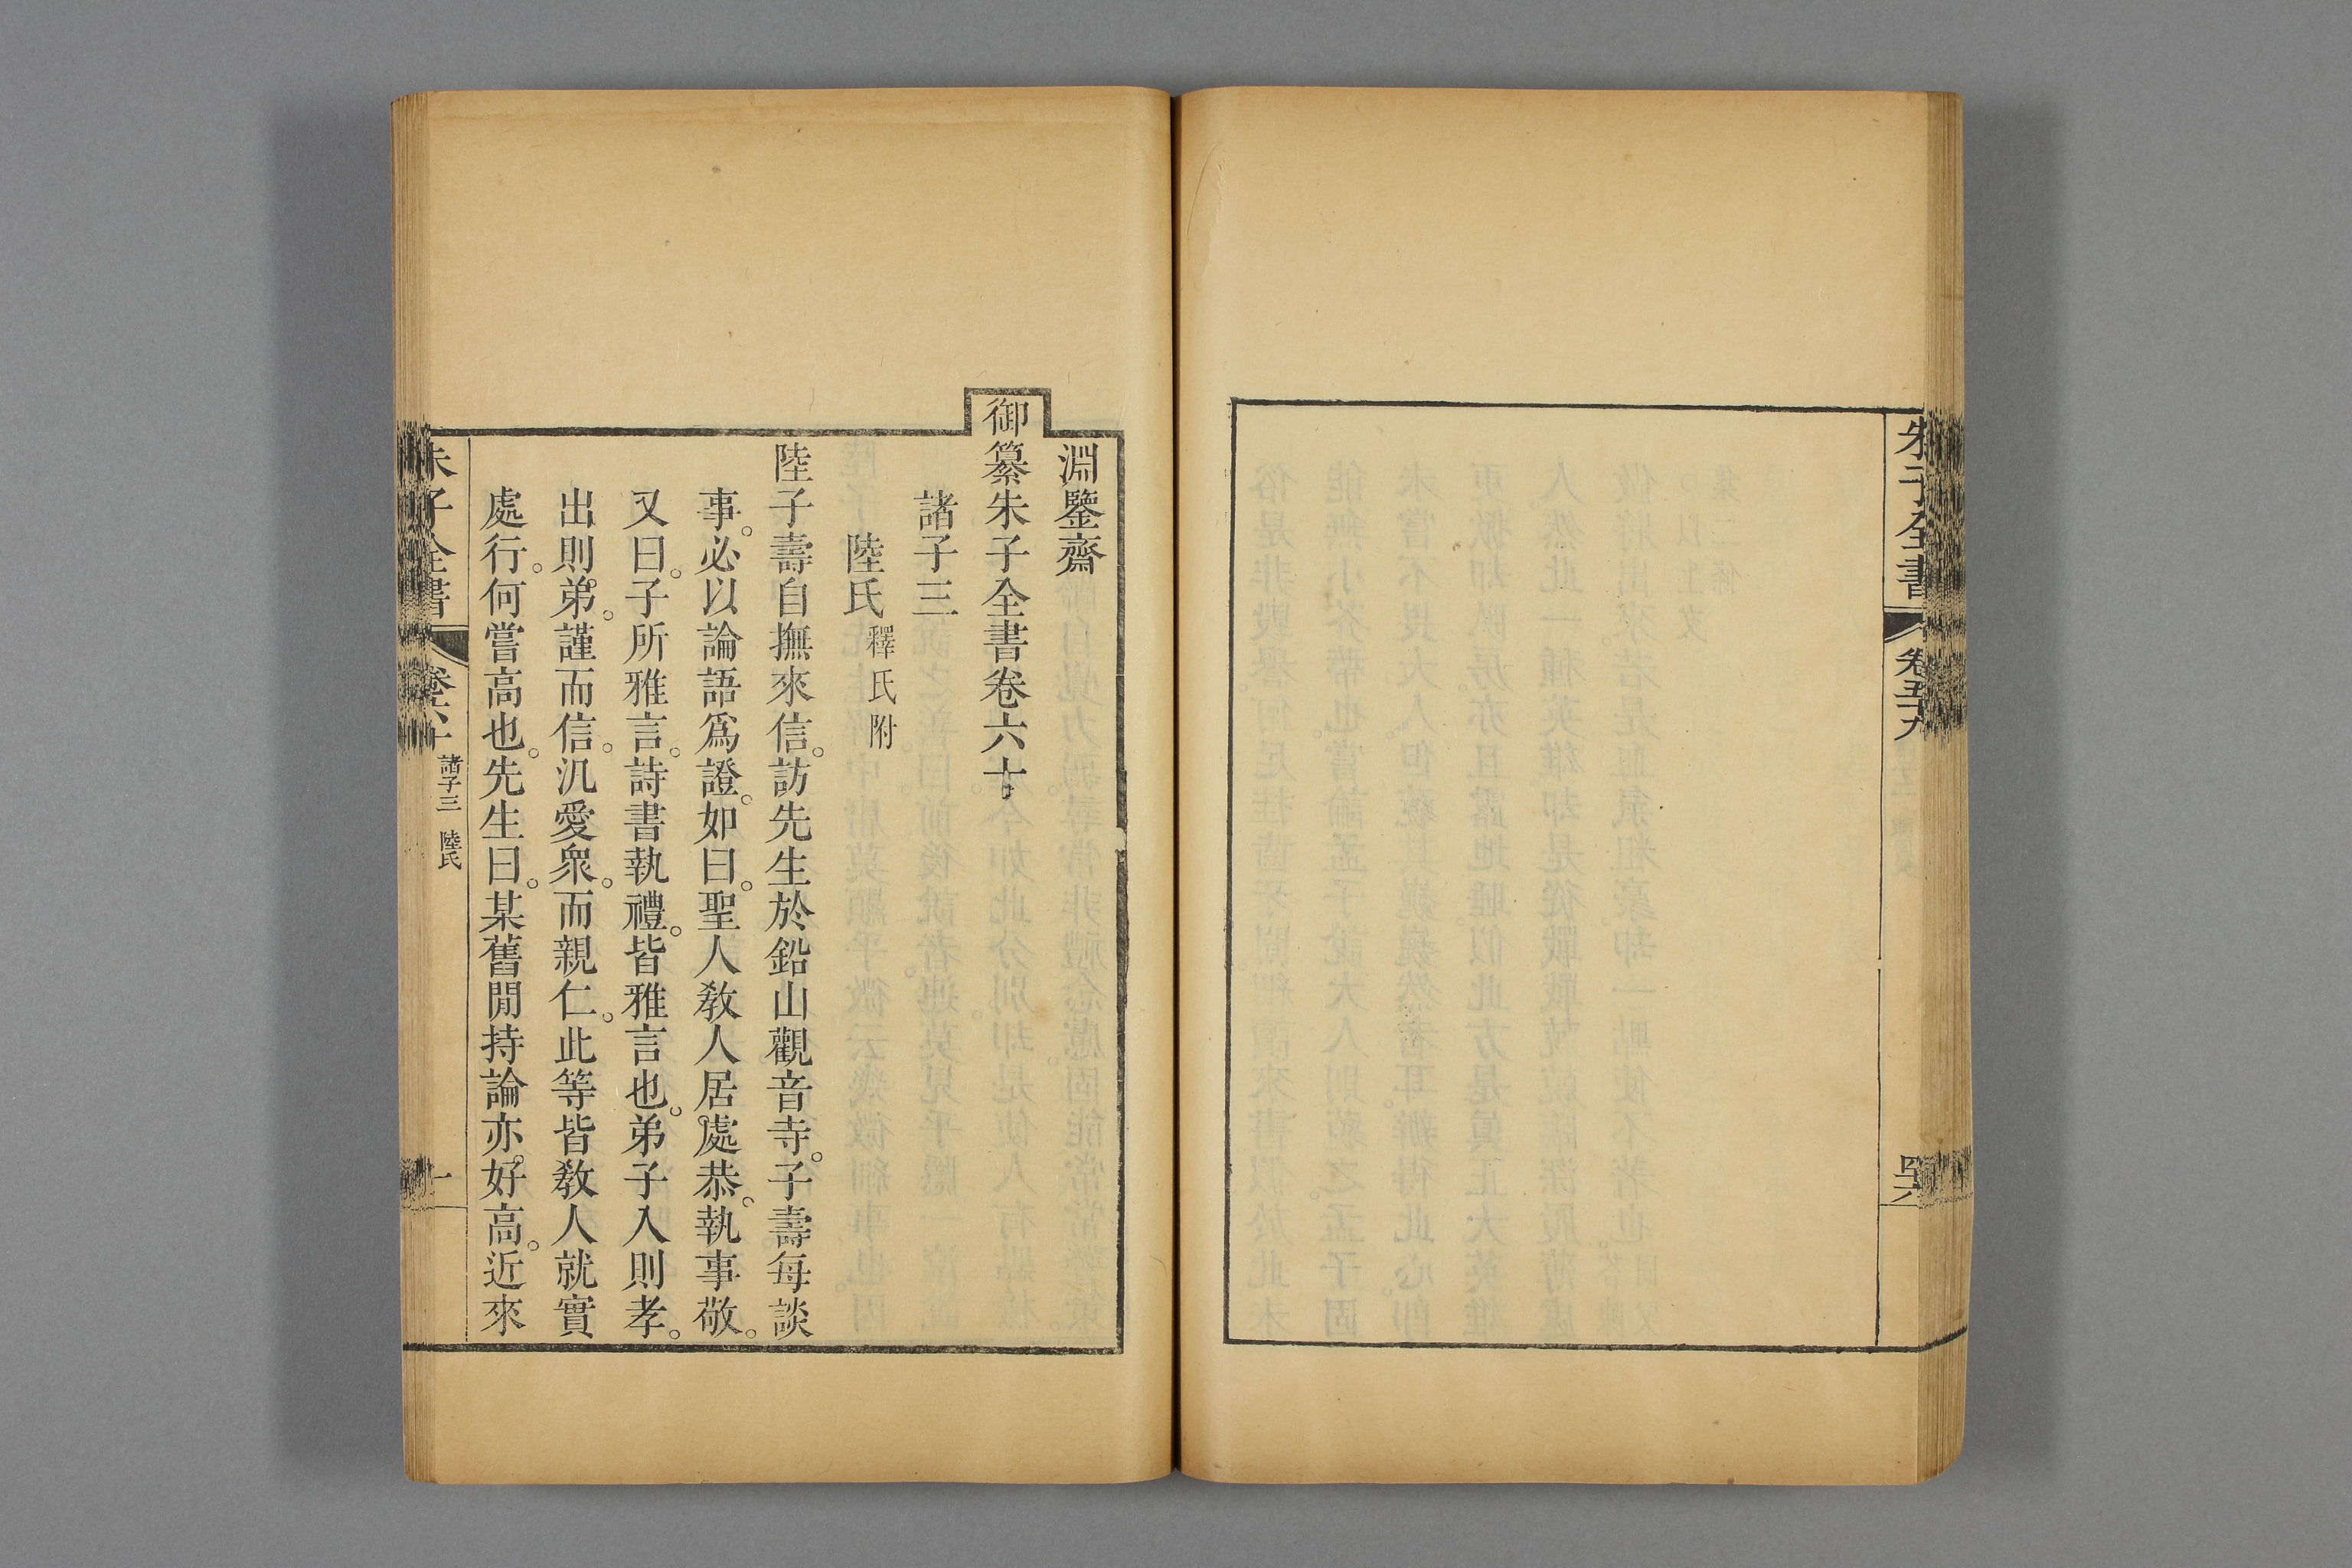 朱子全書 卷五十九 四六
淵鑒齋
御纂朱子全書卷六十
諸子三
陸氏 釋氏附
陸子壽自撫來信。訪先生於鉛山觀音寺。子壽每談
事。必以論語爲證。如曰。聖人教人居處恭。執事敬。
又曰。子所雅言。詩書執禮。皆雅言也。弟子入則孝。
出則弟。謹而信。汎愛衆。而親仁。此等皆教人就實
處行。何嘗高也。先生曰。某舊閒持論亦好高。近來
朱子全書 卷六十 諸子三 陸氏 一